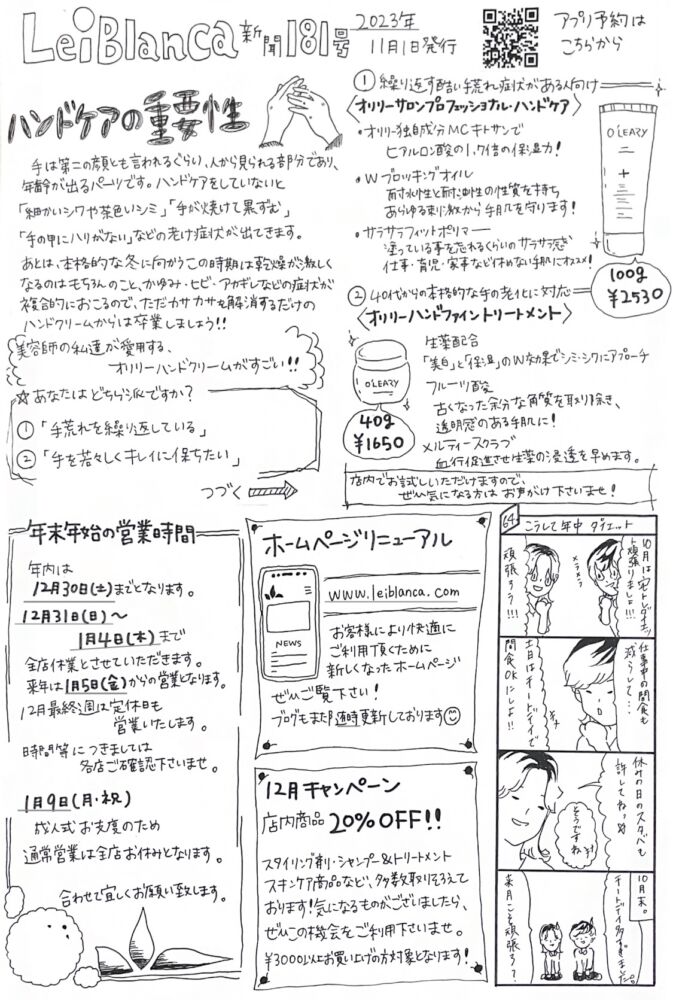 LeiBlanca 新聞181号
2023年
11月1日発行
アプリ予約は
こちらから
ハンドケアの重要性
手は第二の顔とも言われるぐらい、人から見られる部分であり、
年齢が出るパーツです。ハンドケアをしていないと
「細かいシワや茶色いシミ」「手が焼けて黒ずむ」
「手の甲にハリがない」などの老け症状が出てきます。
あとは、本格的な冬に向かうこの時期は乾燥が激しく
なるのはもちろんのこと、かゆみ・ヒビ・アカギレなどの症状が
複合的におこるので、ただカサカサを解消するだけの
ハンドクリームからは卒業しましょう!!
美容師の私達が愛用する、
オリリーハンドクリームがすごい!!
☆あなたはどちら派ですか?
①「手荒れを繰り返している」
②「手を若々しくキレイに保ちたい」
つづく
①繰り返す酷い手荒れ症状がある人向け
〈オリリーサロンプロフェッショナル・ハンドケア〉
・オリリー独自成分MCキトサンで
ヒアルロン酸の1.7倍の保湿力!
・Wブロッキングオイル
耐水性と耐油性の性質を持ち
あらゆる刺激から手肌を守ります!
・サラサラフィットポリマー
塗っている事を忘れるくらいのサラサラ感
仕事・育児・家事など休めない手肌にオススメ!
O'LEARY
100g
¥2530
②40代からの本格的な手の老化に対応
〈オリリーハンドファイントリートメント〉
生薬配合
「美白」と「保湿」のW効果でシミ・シワにアプローチ
フルーツ酸
古くなった余分な角質を取り除き、
透明感のある手肌に!
メルティースクラブ
血行促進させ生薬の浸透を早めます。
O'LEARY
40g
¥1650
店内でお試しいただけますので、
ぜひ気になる方はお声がけ下さいませ!
年末年始の営業時間
年内は
12月30日(土)までとなります。
12月31日(日)〜
1月4日(木)まで
全店休業とさせていただきます。
来年は1月5日(金)からの営業となります。
12月最終週は定休日も
営業いたします。
時間等につきましては
各店ご確認下さいませ。
1月9日(月・祝)
成人式お支度のため
通常営業は全店お休みとなります。
合わせて宜しくお願い致します。
ホームページリニューアル
NEWS
www.leiblanca.com
お客様により快適に
ご利用頂くために
新しくなったホームページ
ぜひご覧下さい!
ブログもまた随時更新しております
12月キャンペーン
店内商品20%OFF!!
スタイリング剤・シャンプー&トリートメント
スキンケア商品など、多数取りそろえて
おります!気になるものがございましたら、
ぜひこの機会をご利用下さいませ。
¥3000以上お買い上げの方対象となります!
64
こうして年中ダイエット
頑張ろう!!!
メラメラ
仕事中の間食も
減らして…
土日はチートデイで
間食OKにしよ!!
休みの日のスタバも
許してねっ
そうですね
10月末。
チートデイ多すぎました。
来月こそ頑張ろう?